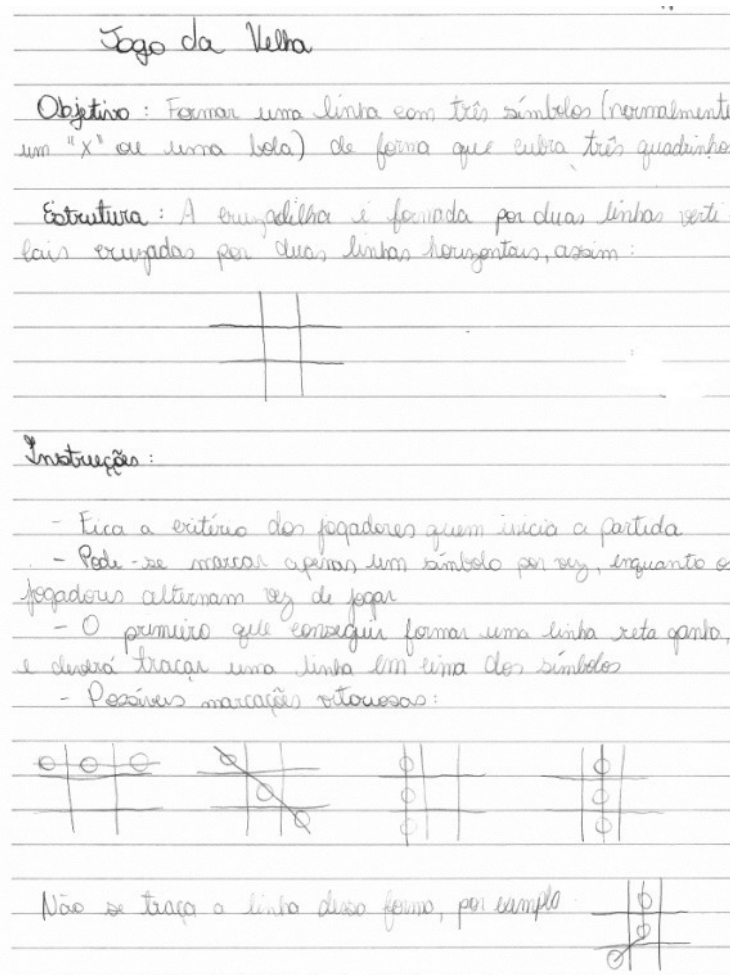 Jogo da Velha
Objetivo: Formar uma linha com três símbolos (normalmente
um "x" ou uma bola) de forma que cubra três quadrinhos
Estrutura: A cruzadilha é formada por duas linhas verti-
cais cruzadas por duas linhas horizontais, assim:
Instruções:
- Fica a critério dos jogadores quem inicia a partida
- Pode-se marcar apenas um símbolo por vez, enquanto os
jogadores alternam vez de jogar
- O primeiro que conseguir formar uma linha reta ganha,
e deverá traçar uma linha em cima dos símbolos
- Possíveis marcações vitoriosas:
Não se traça a linha dessa forma, por exemplo